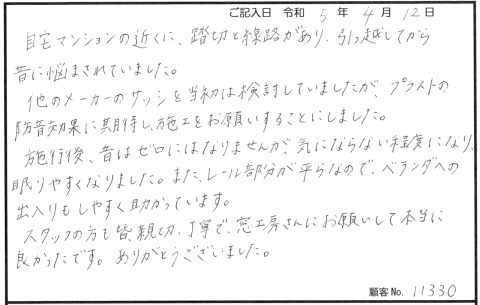 ご記入日 令和 5 年 4 月 12 日
自宅マンションの近くに、踏切と線路があり、引っ越してから
音に悩まされていました。
他のメーカーのサッシを当初は検討していましたが、プラストの
防音効果に期待し、施工をお願いすることにしました。
施行後、音はゼロにはなりませんが、気にならない程度になり、
眠りやすくなりました。また、レール部分が平らなので、ベランダへの
出入りもしやすく助かっています。
スタッフの方も皆、親切、丁寧で、窓工房さんにお願いして本当に
良かったです。ありがとうございました。
顧客No. 11330